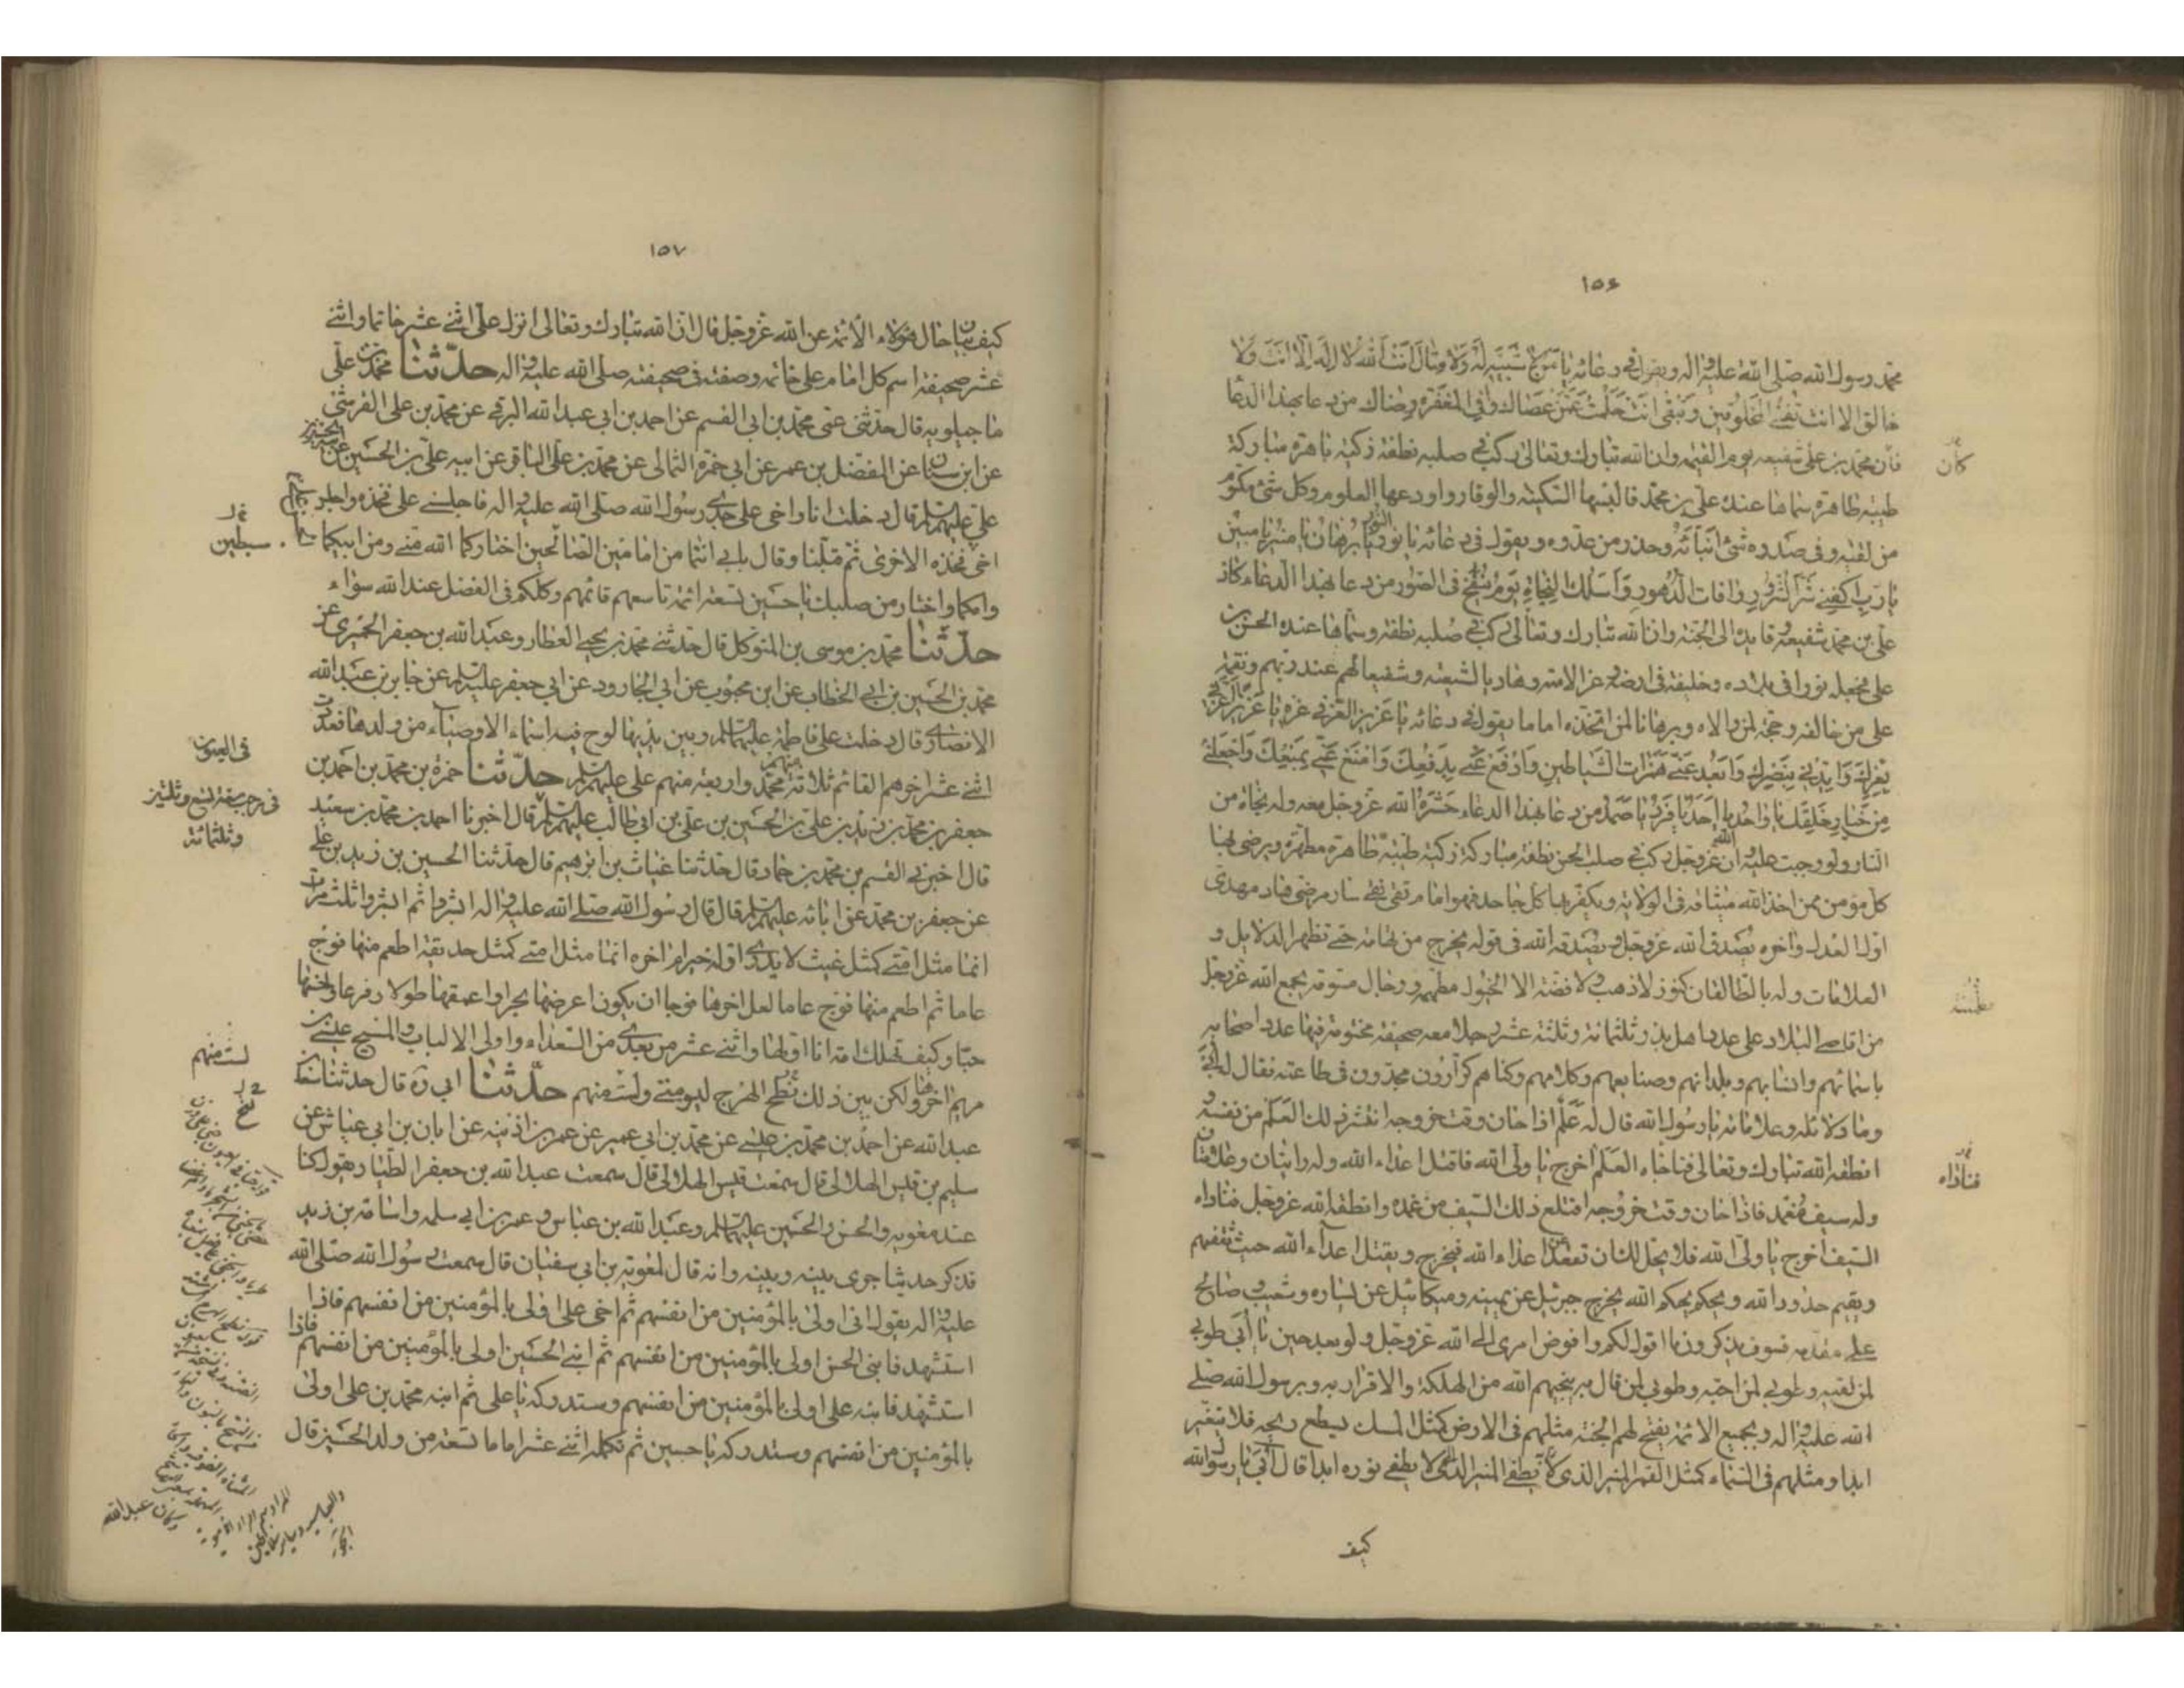 ١٥٦
محمد رسول الله صلى الله عليه واله ويقول في دعائه يا من لا شبيه له ولا مثال انت الله لا اله الا انت ولا
خالق الا انت تفنى المخلوقين وتبقى انت حلمت عمن عصاك وفي المغفرة رضاك من دعا بهذا الدعا
كان محمد بن على شفيعه يوم القيمة وان الله تبارك وتعالى ركب في صلبه نطفة زكية باهرة مباركة
كان
طيبة طاهرة سماها عنده على بن محمد فالبسها السكينة والوقار واودعها العلوم وكل شئ مكتوم
من لقيه وفي صدره شئ انبأه به وحذره من عدوه ويقول في دعائه يا نور يا برهان يا منير يا مبين
يا رب اكفنى شر الشرور وافات الدهور واسئلك النجاة يوم ينفخ في الصور من دعا بهذا الدعاء كان
على بن محمد شفيعه وقايده الى الجنة وان الله تبارك وتعالى ركب في صلبه نطفة وسماها عنده الحسن بن
على فجعله نورا في بلاده وخليفة في ارضه وعزا لامته وهاديا لشيعته وشفيعا لهم عند ربهم ونقمة
على من خالفه وحجة لمن والاه وبرهانا لمن اتخذه اماما يقول في دعائه يا عزيز العز في عزه يا عزيز اعزني
بعزك وايدني بنصرك وابعد عني همزات الشياطين وادفع عني بدفعك وامنع عني بمنعك واجعلني
من خيار خلقك يا واحد يا احد يا فرد يا صمد من دعا بهذا الدعاء حشره الله عزوجل معه ولو نجاة من
النار ولو وجبت عليه ان الله عزوجل ركب في صلب الحسن نطفة مباركة زكية طيبة طاهرة مطهرة ويرضى بها
كل مؤمن ممن اخذ الله ميثاقه في الولاية ويكفر بها كل جاحد فهو امام تقى نقى سار مرضى هاد مهدى
اول العدل واخره يصدق الله عزوجل ويصدقه الله في قوله يخرج من تهامة حتى تظهر الدلايل و
العلامات وله بالطالقان كنوز لا ذهب ولا فضة الا الخيول مطهمة ورجال مسومة يجمع الله عزوجل
من اقاصى البلاد على عدد اهل بدر وثلثمائة وثلثة عشر رجلا معه صحيفة مختومة فيها عدد اصحابه
باسمائهم وانسابهم وبلدانهم وصنايعهم وكلامهم وكناهم كرارون مجدون في طاعته فقال له ابى
وما دلائله وعلاماته يا رسول الله قال له علم اذا حان وقت خروجه انتشر ذلك العلم من نفسه و
انطقه الله تبارك وتعالى فناداه العلم اخرج يا ولى الله فاقتل اعداء الله وله رايتان وعلامتان
فناداه
وله سيف مغمد فاذا حان وقت خروجه اقتلع ذلك السيف من غمده وانطقه الله عزوجل فناداه
السيف اخرج يا ولى الله فلا يحل لك ان تقعد عن اعداء الله فيخرج ويقتل اعداء الله حيث ثقفهم
ويقيم حدود الله ويحكم بحكم الله يخرج جبرئيل عن يمينه وميكائيل عن يساره وشعيب وصالح
على مقدمه فسوف تذكرون ما اقول لكم وافوض امرى الى الله عزوجل ولو بعد حين يا ابى طوبى
لمن لقيه وطوبى لمن احبه وطوبى لمن قال به ينجيهم الله من الهلكة والاقرار به وبرسول الله صلى
الله عليه واله وبجميع الائمة يفتح لهم الجنة مثلهم في الارض كمثل المسك يسطع ريحه فلا يتغير
ابدا ومثلهم في السماء كمثل القمر المنير الذى لا يطفى نوره ابدا قال ابى يا رسول الله
كيف
١٥٧
كيف بيان حال هؤلاء الائمة عن الله عزوجل قال ان الله تبارك وتعالى انزل على اثنى عشر خاتما واثنى
عشر صحيفة اسم كل امام على خاتمه وصفته في صحيفته صلى الله عليه واله حدثنا محمد بن على
ماجيلويه قال حدثنى عمى محمد بن ابى القسم عن احمد بن ابى عبد الله البرقى عن محمد بن على القرشى
عن ابن سنان عن المفضل بن عمر عن ابى حمزة الثمالى عن محمد بن على الباقر عن ابيه على بن الحسين عن ابيه الحسين بن
على عليهم السلم قال دخلت انا واخى على جدى رسول الله صلى الله عليه واله فاجلسنى على فخذه واجلس
اخى على فخذه الاخرى ثم قبلنا وقال بابى انتما من امامين الصالحين اختاركما الله منى ومن ابيكما
سبطين
وامكما واختار من صلبك يا حسين تسعة ائمة تاسعهم قائمهم وكلكم في الفضل عند الله سواء
حدثنا محمد بن موسى بن المتوكل قال حدثنى محمد بن يحيى العطار وعبد الله بن جعفر الحميرى عن
محمد بن الحسين بن ابى الخطاب عن ابن محبوب عن ابى الجارود عن ابى جعفر عليه السلم عن جابر بن عبد الله
الانصارى قال دخلت على فاطمة عليها السلم وبين يديها لوح فيه اسماء الاوصياء من ولدها فعددت
اثنى عشر اخرهم القائم ثلاثة منهم محمد واربعة منهم على عليهم السلم حدثنا حمزة بن محمد بن احمد بن
في العيون
في رجب سنة تسع وثلثين
وثلثمائة
جعفر بن محمد بن زيد بن على بن الحسين بن على بن ابى طالب عليهم السلم قال اخبرنا احمد بن محمد بن سعيد
قال اخبرنى القسم بن محمد بن حماد قال حدثنا غياث بن ابرهيم قال حدثنا الحسين بن زيد بن على
عن جعفر بن محمد عن ابائه عليهم السلم قال قال رسول الله صلى الله عليه واله ابشروا ثم ابشروا ثلث مرات
انما مثل امتى كمثل غيث لا يدرى اوله خير ام اخره انما مثل امتى كمثل حديقة اطعم منها فوج
عاما ثم اطعم منها فوج عاما لعل اخرها فوجا ان يكون اعرضها بحرا واعمقها طولا وفرعا واحسنها
حبا وكيف تهلك امة انا اولها واثنى عشر من بعدى من السعداء واولى الالباب والمسيح عيسى بن
مريم اخرها ولكن بين ذلك نتج الهرج ليسو منى ولست منهم حدثنا ابى ره قال حدثنا سعد بن
لست منهم
عبد الله عن احمد بن محمد بن عيسى عن محمد بن ابى عمير عن عمر بن اذينه عن ابان بن ابى عياش عن
سليم بن قيس الهلالى قال سمعت قيس الهلالى قال سمعت عبد الله بن جعفر الطيار يقول كنا
عند معوية والحسن والحسين عليهما السلم وعبد الله بن عباس وعمر بن ابى سلمه واسامة بن زيد
فذكر حديثا جرى بينه وبينه وانه قال لمعوية بن ابى سفيان قال سمعت رسول الله صلى الله
عليه واله يقول انى اولى بالمؤمنين من انفسهم ثم اخى على اولى بالمؤمنين من انفسهم فاذا
استشهد فابنى الحسن اولى بالمؤمنين من انفسهم ثم ابنى الحسين اولى بالمؤمنين من انفسهم فاذا
استشهد فابنه على اولى بالمؤمنين من انفسهم وستدركه يا على ثم ابنه محمد بن على اولى
بالمؤمنين من انفسهم وستدركه يا حسين ثم تكمله اثنى عشر اماما تسعة من ولد الحسين قال